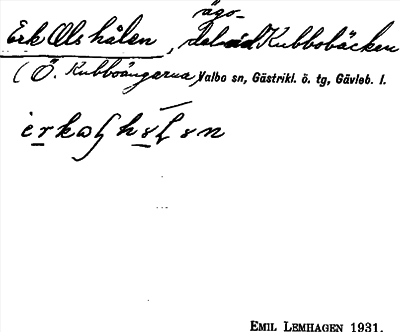 ägo-
Erk Ols hålen, del vid Kubbobäcken
(Ö. Kubboängarna) Valbo sn, Gästrikl. ö. tg, Gävleb. l.
EMIL LEMHAGEN 1931.